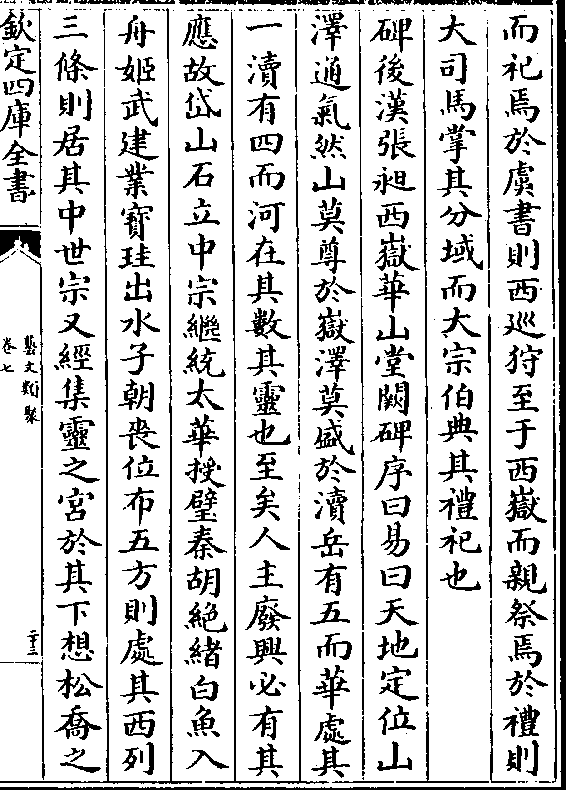 而祀焉於虞書則西巡狩至于西嶽而親祭焉於禮則
大司馬掌其分域而大宗伯典其禮祀也
碑後漢張昶西嶽華山堂闕碑序曰易曰天地定位山
澤通氣然山莫尊於嶽澤莫盛於瀆岳有五而華處其
一瀆有四而河在其數其靈也至矣人主廢興必有其
應故岱山石立中宗繼統太華授璧秦胡絶緒白魚入
舟姬武建業寳珪出水子朝喪位布五方則處其西列
三條則居其中世宗又經集靈之宮於其下想松喬之
欽定四庫全書
藝文類聚
卷七
二十三